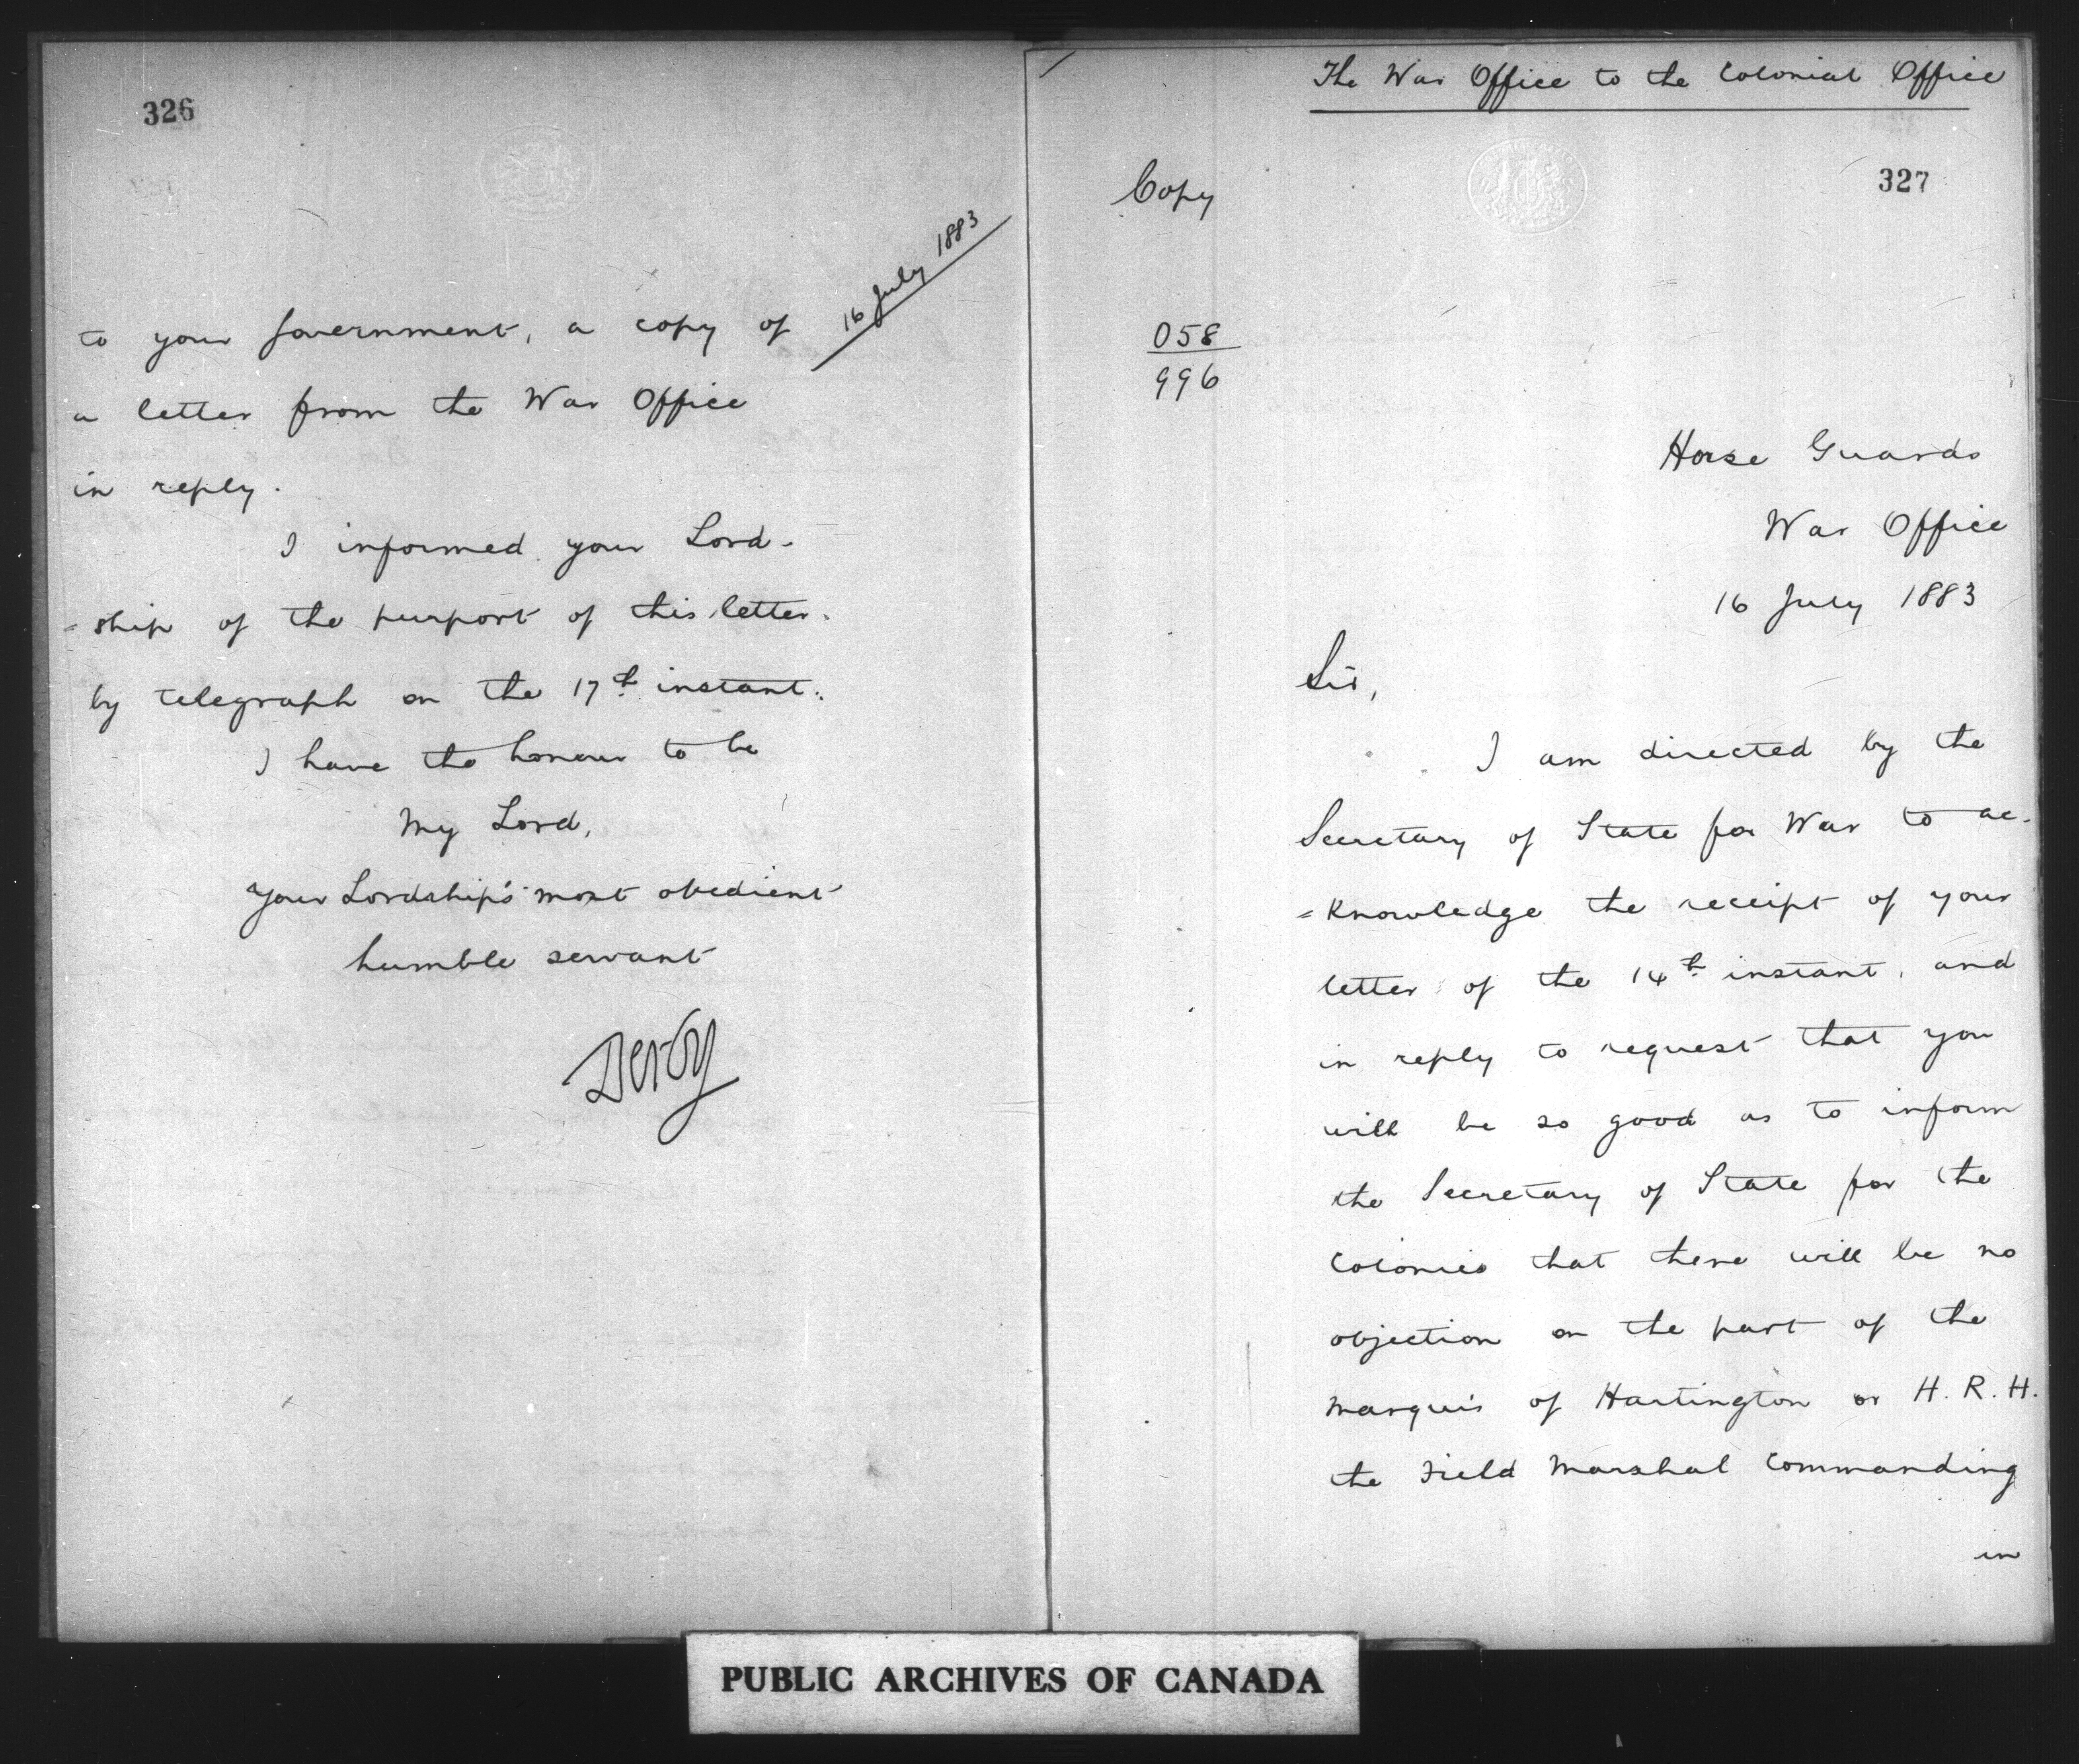 326
16 July 1883
to your Government, a copy of
a letter from the War Office
in reply.
I informed your Lord-
=ship of the purport of this letter
by telegraph on the 17th instant.
I have the honour to be
My Lord,
Your Lordship's most obedient
humble servant
Derby
The War Office to the Colonial Office
327
Copy
058
996
Horse Guards
War Office
16 July 1883
Sir,
I am directed by the
Secretary of State for War to ac-
=knowledge the receipt of your
letter of the 14th instant, and
in reply to request that you
will be so good as to inform
the Secretary of State for the
Colonies that there will be no
objection on the part of the
Marquis of Hartington or H. R. H.
the Field Marshal Commanding
in
PUBLIC ARCHIVES OF CANADA